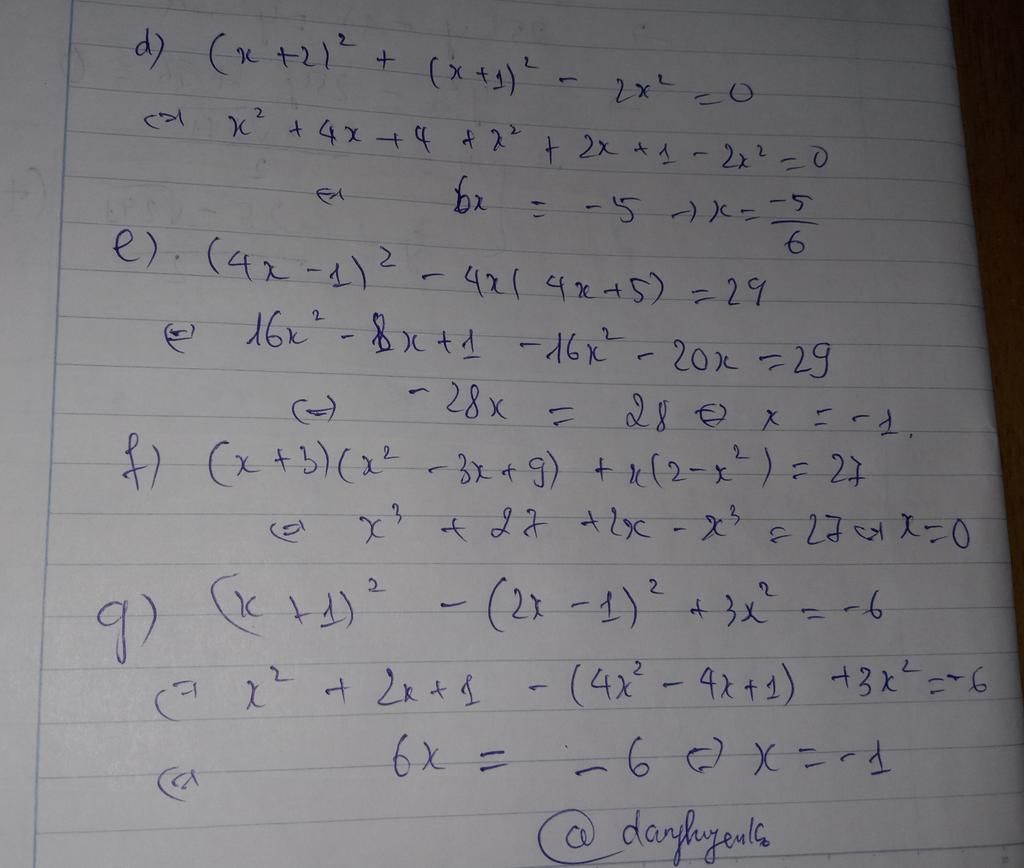 d) (x+2)² + (x+1)² - 2x² = 0
⇔ x² + 4x + 4 + x² + 2x + 1 - 2x² = 0
⇔ 6x = -5 → x = -5/6
e) (4x - 1)² - 4x(4x+5) = 29
⇔ 16x² - 8x + 1 - 16x² - 20x = 29
⇔ -28x = 28 ⇔ x = -1.
f) (x+3)(x² - 3x + 9) + x(2-x²) = 27
⇔ x³ + 27 + 2x - x³ = 27 ⇔ x = 0
g) (x+1)² - (2x - 1)² + 3x² = -6
⇔ x² + 2x + 1 - (4x² - 4x + 1) + 3x² = -6
⇔ 6x = -6 ⇔ x = -1
@